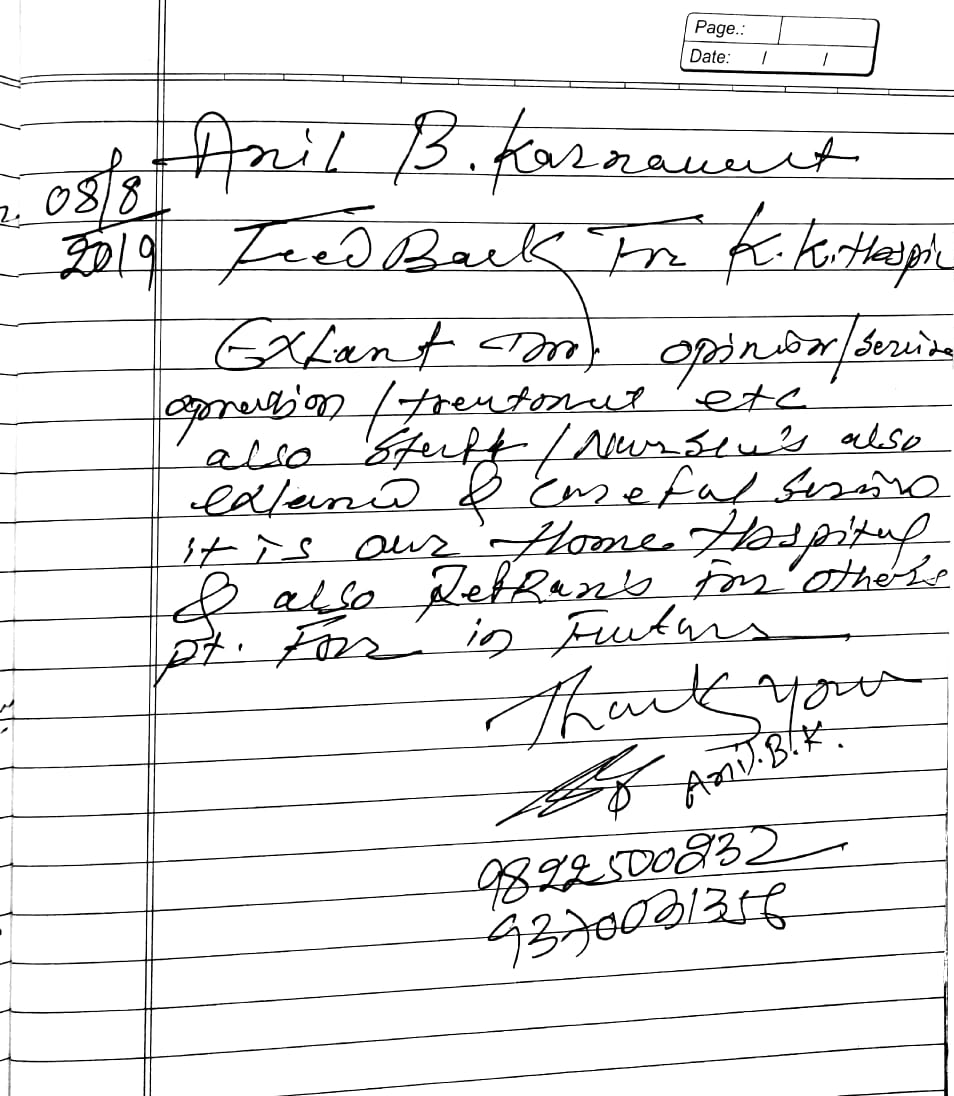 Page.:
Date: / /
Anil B. Karnavat
08/8
2019 FeedBack For K.K. Hospi
Exlant opinion/Servise
opration / treatment etc
also Staff / Nurseu's also
exlend & careful Servise
it is our Home Hospital
& also for other's
pt. For in Future
Thank you
Anil.B.K.
9822500232
9370031356